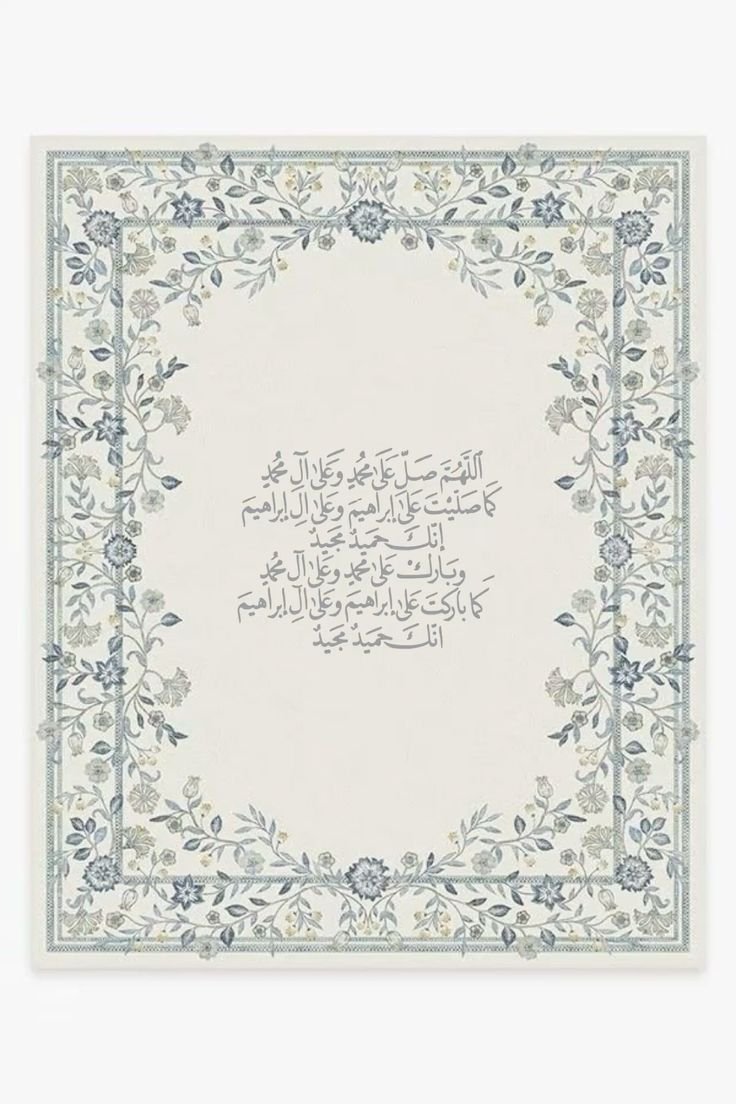 ٱللَّهُمَّ صَلِّ عَلَىٰ مُحَمَّدٍ وَعَلَىٰ آلِ مُحَمَّدٍ
كَمَا صَلَّيْتَ عَلَىٰ إِبراهِيمَ وَعَلَىٰ آلِ إِبراهِيمَ
إِنَّكَ حَمِيدٌ مَجِيدٌ
وَبَارِكْ عَلَىٰ مُحَمَّدٍ وَعَلَىٰ آلِ مُحَمَّدٍ
كَمَا بَارَكتَ عَلَىٰ إِبراهِيمَ وَعَلَىٰ آلِ إِبراهِيمَ
انَّكَ حَمِيدٌ مَجِيدٌ